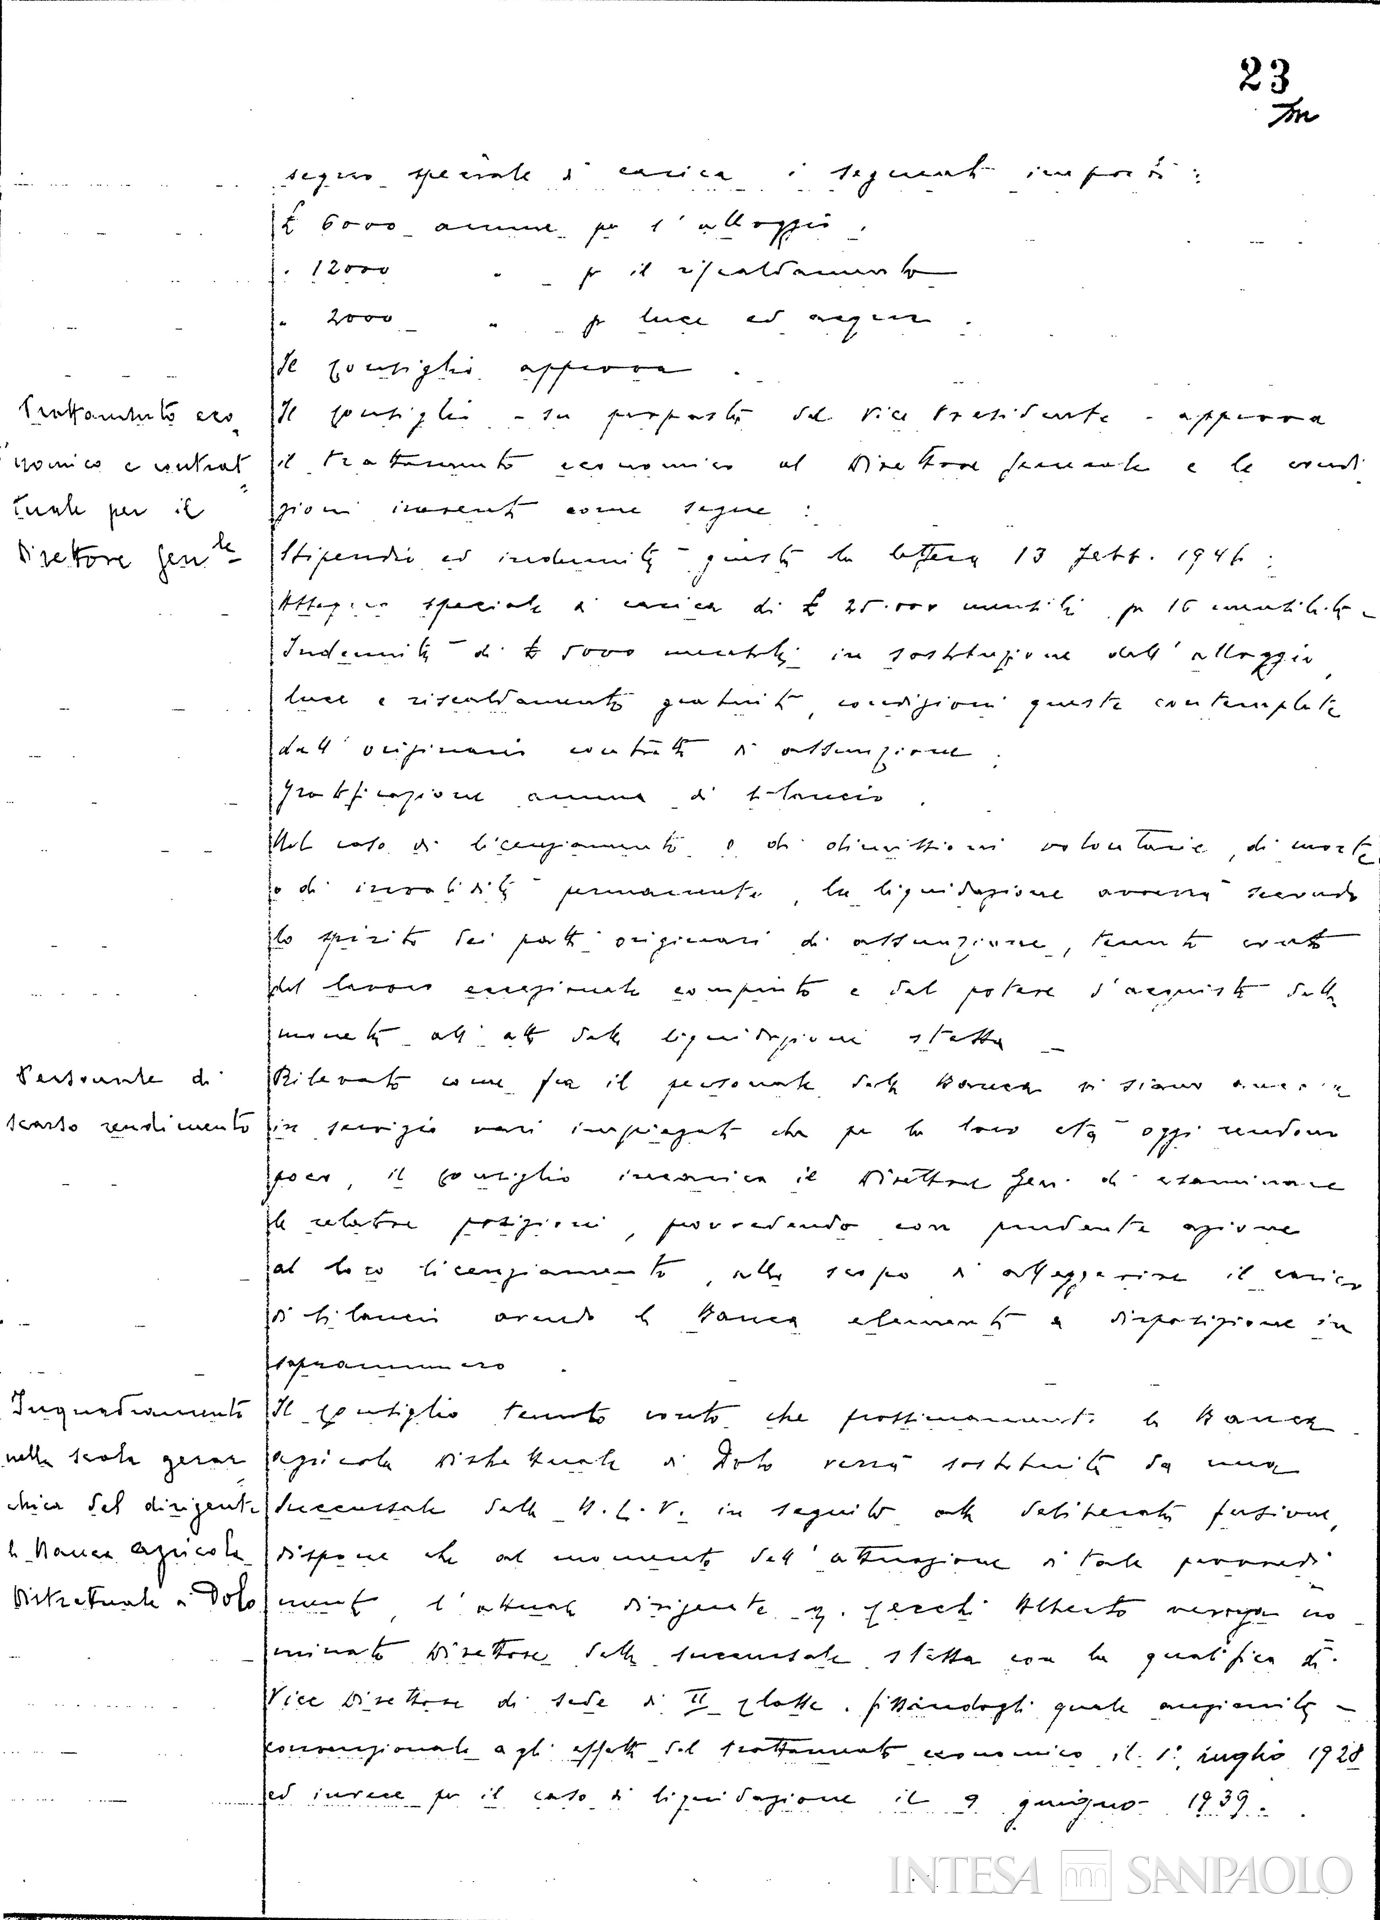 23
segno speciale di carica i seguenti importi:
£ 6000 annue per l'alloggio.
" 12000 " per il riscaldamento
" 2000 " per luce ed acqua.
Il Consiglio approva.
Trattamento eco=
nomico e contrat=
tuale per il
Direttore Gen.le
Il Consiglio - su proposta del Vice Presidente - approva
il trattamento economico al Direttore Generale e le condi
zioni inerenti come segue:
Stipendio ed indennità giusta la lettera 13 febb. 1946;
Assegno speciale di carica di £ 25.000 mensili per 16 mensilità
Indennità di £ 5000 mensili in sostituzione dell'alloggio,
luce e riscaldamento gratuiti, condizioni queste contemplate
dall'originario contratto di assunzione;
Gratificazione annua di bilancio.
Nel caso di licenziamento o di dimissioni volontarie, di morte
o di invalidità permanente, la liquidazione avverrà secondo
lo spirito dei patti originari di assunzione, tenuto conto
del lavoro eccezionale compiuto e del potere d'acquisto della
moneta all'atto della liquidazione stessa
Personale di
scarso rendimento
Rilevato come fra il personale della Banca vi siano ancora
in servizio vari impiegati che per la loro età oggi rendono
poco, il Consiglio incarica il Direttore Gen. di esaminare
le relative posizioni, provvedendo con prudente azione
al loro licenziamento, allo scopo di alleggerire il carico
di bilancio avendo la Banca elementi a disposizione in
soprannumero.
Inquadramento
nella scala gerar
chica del dirigente
la Banca Agricola
Distrettuale di Dolo
Il Consiglio tenuto conto che prossimamente la Banca
Agricola Distrettuale di Dolo verrà sostituita da una
Succursale della B.C.V. in seguito alla deliberata fusione,
dispone che al momento dell'attuazione di tale provvedi
mento, l'attuale dirigente Alberto venga no
minato Direttore della succursale stessa con la qualifica di
Vice Direttore di Sede di II Classe, fissandogli quale anzianità
convenzionale agli effetti del trattamento economico il 1° luglio 1928
ed invece per il caso di liquidazione il 9 giugno 1939.
INTESA SANPAOLO